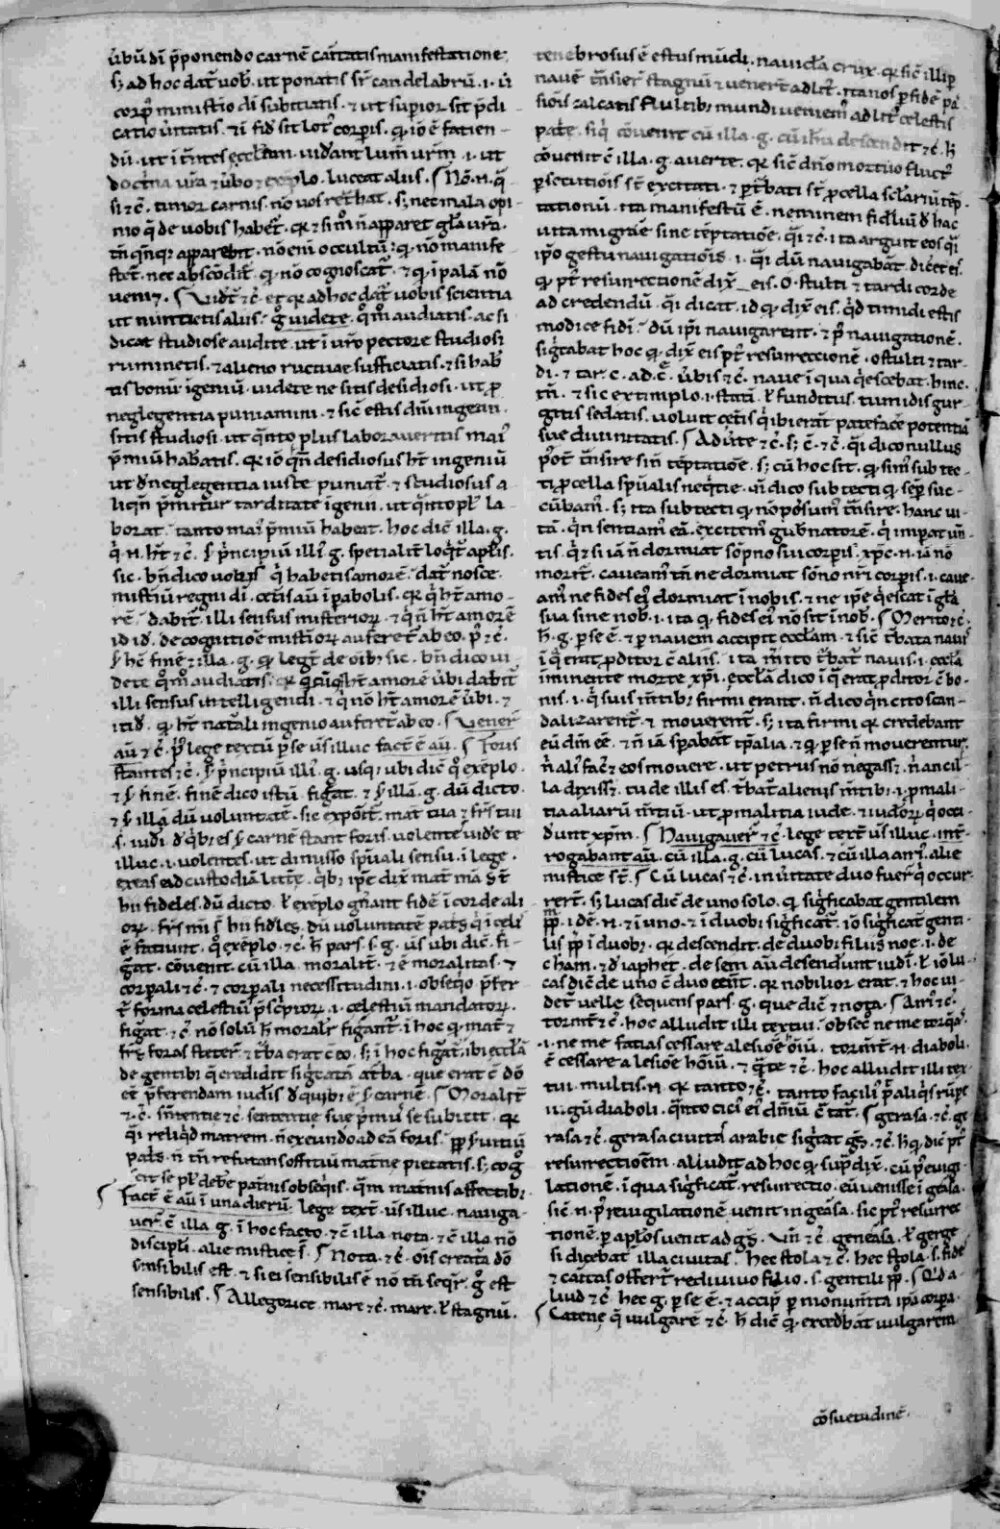 ůbū dī p̄ponendo carnē caritatis manifestatione
s; ad hoc dat̄ uob̄. ut ponatis sr̄ candelabrū .i. ur̄
corp̄ ministrio dī subiciatis. ⁊ ut superior sit p̄di
catio ueritatis. ⁊ ī fid̄ sit lot' corporis. q̄ iō ē facien-
dū. ut ītrntes eccl̄iam. uideant lum̄ ur̄m .i. ut
doctrina ur̄a ⁊ ůbo ⁊ exēplo. luceat aliis. ⸿ Nō .n. q̄
si ⁊c̄. timor carnis. nō uos ret̄hat. s; nec mala opi-
nio q̄ de uobis habet̄. q̄ ⁊ si m̊ n̄ apparet gl̄a ur̄a.
tn̄ qn̄q; apparebit. nō eni occultū: q̄ nō manife
stet̄. nec abscōdit̄. q̄ nō cognoscat̄. ⁊ q̄ ī palā nō
ueniz. ⸿ Uidete ⁊c̄. et q̄ ad hoc dat̄ uobis scientia
ut nuntietis aliis. g̊ uidete. q̊m̊ audiatis. ac si
dicat studiose audite. ut ī uro pectore studiosi
ruminetis. ⁊ alieno ructuae sufficiatis. ⁊ si hab̄
tis bonum igeniū. uidere ne sitis desidiosi. ut p̄
neglegentia puniamini. ⁊ sic̄ estis dm̄ ingeni.
sitis studiosi. ut q̄nto plus laboraueritis mai'
p̄miū habeatis. q̄ iō qn̄ desidiosus ht̄ ingeniū
ut d̄ neglegentia iuste puniat̄. ⁊ studiosus a
liqn̄ p̄mitur tarditate igenii. ut q̄nto pl' la-
borat. tanto mai' p̄miū habeat. hoc diē illa .g.
q̊ .n. ht̄ ⁊c̄. s̄ p̄ncipiū illi' .g. specialit̄ loq̄t̄ apl̄is.
sic. bn̄ dico uobis q̊ habetis amorē. dat̄ nosce
misteriū regni dī. cet̄is aū ī parabolis. q̄ q̊ ht̄ amo-
rē. dabit̄ illi sensus misteriorꝝ. ⁊ q̊ n̄ ht̄ amorē
id id. de cognitiōe misteriorꝝ auferet̄ ab eo. p̄' ⁊c̄.
s̄ hc̄ fine ⁊ illa .g. q̄ legit̄ de oībꝫ sic. bn̄ dico ui
dete q̊m̊ audiatis. q̄ q̊cūq̊ ht̄ amorē ůbi dabit̄
illi sensus intelligendi. ⁊ q̊ nō ht̄ amorē ůbi. ⁊
it id. q̄ ht̄ natali ingenio auferet̄ ab eo. ⸿ Uener̄
aū ⁊c̄. p̄' lege textū p̄ se us̄ illuc. fact̄ ē aū. ⸿ Foris
stantes ⁊c̄. s̄ p̄ncipiū illi' .g. usq; ubi diē q̊ exēplo
⁊ s̄ finē. finē dico istū. figat̄. ⁊ s̄ illā .g. dū dicto.
⁊ s̄ illā dū uoluntatē. sic expōit̄. mat̄ tua ⁊ fr̄s tui
.s. iudī d̄ q̊bꝫ es s̄ carnē stant foris. uolente uide te
illuc .i. uolentes. ut dimisso sp̄uali sensu. ī lege.
exeas ad custodiā litt̄e. q̊bꝫ ipe dix̄ mat̄ mā st̄
hii fideles. dū dicto. l' exēplo gn̄ant fidē ī corde ali
orꝝ. fr̄s mī s̄ hii fid̄les. dū uoluntatē pat̄s q̊ ī cel'
ē faciunt. q̊ exēplo. ⁊c̄. h̄ pars .s .g. us̄ ubi diē. fi-
gat̄. cōuenit. cū illa moralit̄. ⁊ ē moralitas. ⁊
corp̄ali ⁊c̄. ⁊ corpali necessitudini .i. obseq̊o p̄fer
t̄ forma celestiū p̄sc̄ptorꝝ .i. celestiū mandatorꝝ.
figat̄. ⁊c̄. nō solū h̄ moralit̄ figant̄. ī hoc q̄ mat̄ ⁊
fr̄s foras steter̄. ⁊ t̄ba erat c̄ eo. s; ī hoc figat̄. ibi eccl̄ā
de gentibꝫ q̄ credidit sigtat̄ a t̄ba. que erat c̄ dō
et̄ p̄ferendam iudīs d̄ quibꝫ ē s̄ carnē. ⸿ Moralit̄
⁊ c̄. sn̄tentie ⁊c̄. sententie sue p̄mū se subicit. q̄
q̊i reliqd̄ matrem. n̄ exeundo ad eā foris. p̄p̄ furtiū
pat̄s. n̄ tn̄ refutans offitiū materne pietatis. s; cog̊
cit se pl' debē pat̄nis obseq̊is. q̊m maternis affectibꝫ.
⸿ Fact̄ ē aū ī una dierū. lege text̄. us̄ illuc. nauiga-
uer̄. ē illa .g. ī hoc facto. ⁊ ē illa nota. ⁊ ē illa nō
discip̄li. alie mistice s̄. ⸿ Nota. ⁊c̄. oīs creat̄a dō
sn̄sibilis est. ⁊ si ei sensibilis ē nō tn̄ seq̄r̄. g̊ est
sensibilis. ⸿ Allegorice. mare ⁊c̄. mare. l' stagnū.
tenebrosus ē estus mūdi. nauicl̄a crux. q̄ sic̄ illi p̄
nauē tn̄sier̄ stagnū ⁊ uener̄t ad lit̄. ita nos p̄ fidē pa
siōis calcatis fluctibꝫ mundi ueniem' ad lit' celestis
patē. siq̊ cōuenit cū illa .g. cū ita descendit ⁊c̄. h̄
cōuenit c̄ illa .g. auerte. q̄ sic̄ dn̄o mortuo fluct'
p̄secutiōis st̄ excitati. ⁊ p̄t̄bati st̄ procella scl̄ariū tēp
tationū. ita manifestū ē. neminem fidliū d̄ hac
uita migrāe sine tēptatiōe. q̊i ⁊c̄. ita arguit eos q̊i
ip̄o gestu nauigatiōis .i. q̊i dū nauigabāt. dicēt eis
q̄ pt̄ resurrectionē dix̄ eis. O stulti ⁊ tardi corde
ad credendū. q̊i dicat. id q̄ dix̄ eis. qd̄ timidi estis
modice fidī. dū ip̄i nauigarent. ⁊ p̄' nauigationē.
sig̊tabat hoc q̄ dix̄ eis pt̄ resurreccionē. o stulti ⁊ tar-
di. ⁊ tar. c. ad. c̄. ůbis ⁊c̄. naue ī qua q̊escebat. hinc.
tn̄. ⁊ sic extimplo .i. stati. l' funditus. tumidis gur-
gitis sedatis. uoluit cet̄is q̊ ibi erāt patefac̄e potentiā
sue diuinitatis. ⸿ Aduerte ⁊c̄. s; c̄. ⁊c̄. q̊i dico nullus
p̄ot̄. tn̄sire sin̄ tēptatiōe. s; cū hoc sit. q̄ sim' sub tec-
ti procella sp̄ualis neq̊tie. n̄ dico sub tecti q̄ sēp suc-
cūbam'. s; ita subtecti q̄ nō possum' tn̄sire. hanc ui-
tā. q̊n sentiam' eā. excitem' gub̄natorē. q̊ imp̄at uē-
tis. q̊ ⁊ si iā n̄ dormiat sōpno sui corpis. xp̄c .n. iā nō
morit̄. caueam' tn̄ ne dormiat sōno nr̄i corpis .i. caue-
am' ne fides ei' dormiat ī nobis. ⁊ ne ipe q̊escat ī gl̄a
sua sine nob̄ .i. ita q̄ fides ei' nō sit ī nob̄. ⸿ Merito ⁊c̄.
h̄ .g. p̄ se ē. ⁊ p̄ nauem accipit eccl̄iam. ⁊ sic̄ t̄bata nauis
ī q̄ erat p̄ditor c̄ aliis. ita m̄ito t̄bat̄ nauis .i. eccl̄a
iminente morte xp̄i. eccl̄ā dico ī q̄ erat p̄ditor c̄ bo-
nis .i. q̊ suis m̄itibꝫ firmi erant. n̄ dico q̄n cito scan-
dalizarent̄. ⁊ mouerent̄. s; ita firmi q̄ credebant
eū dm̄ eē. ⁊ n̄ iā sp̄abāt tp̄alia. ⁊ q̄ p̄ se n̄ mouerentur.
n̄ ali' fac̄et eos mouere. ut petrus nō negass;. n̄ ancil-
la dixiss;. tu de illis es. t̄bat̄ alienis m̄itibꝫ .i. p̄ mali-
tia aliarū m̄itiū. ut p̄ malitia iude. ⁊ iudeorꝝ q̊ occi-
d̄unt xp̄m. ⸿ Nauigauer̄ ⁊c̄. lege text̄ us̄ illuc. int̄-
rogabant aū. cū illa .g. cū lucas. ⁊ cū illa an̄. alie
mistice s̄t. ⸿ Cū lucas ⁊c̄. in ueritate duo fuer̄ q̊ occur-
rer̄t. s; lucas diē de uno solo. q̄ sig̊ficabat gentilem
p̄p̄m .i. dē .n. ⁊ ī uno. ⁊ ī duobꝫ sig̊ficat̄. iō sig̊ficat̄ genti-
lis p̄p̄ ī duobꝫ. q̄ descendit de duobꝫ filiis noe .i. de
cham. ⁊ d̄ iaphet. de sem aū desendunt iudī. l' iō lu-
cas diē de uno c̄ duo eēnt. q̄ nobilior erat. ⁊ hoc ui-
det̄ uelle sequens pars .g. que diē ⁊ nota. ⸿ An̄ ⁊c̄.
torm̄t̄ ⁊c̄. hoc alludit illi textui. obsec̊ ne me torq̄as
.i. ne me facias cessare a lesiōe oīū. torm̄t̄ .n. diaboli.
ē cessare a lesiōe hōiū. ⁊ q̄te ⁊c̄. hoc alludit illi tex
tui. multis .n. q̄ tanto ⁊c̄. tanto facili' p̄ aliq̊s rūpe
u. gū diaboli. q̄nto citi' ei dn̄iū ē tāt. ⸿ Gerasa ⁊c̄. ge
rasa ⁊c̄. gerasa ciuita' arabie sig̊tat gē̄s. ⁊c̄. h̊ q̄ diē pt̄
resurectioēm. alludit ad hoc q̄ sup̄ dix̄. cū p̄ euigi-
lationē. ī qua sig̊ficat̄. resurrectio. eū uenisse ī geāsa.
sic̄ .n. p̄' euigilationē uenit in geāsa. sic pt̄ resurrec
tionē p̄ ap̄los uenit ad gē̄s. Un̄ ⁊c̄. geneasa. l' gerge
si dicebat̄ illa ciuitas. hec stola ⁊c̄. hec stola .s. fidei
⁊ caritas offert̄ rediuiuo filio .s. gentili p̄p̄. ⸿ Qd̄ a-
liud ⁊c̄. hec .g. p̄ se ē. ⁊ accip̄ p̄ monum̄ta ip̄a corpa.
⸿ Catene q̄ uulgare ⁊c̄. h̄ diē q̄ excedebāt uulgarem
cōsuetudinē.